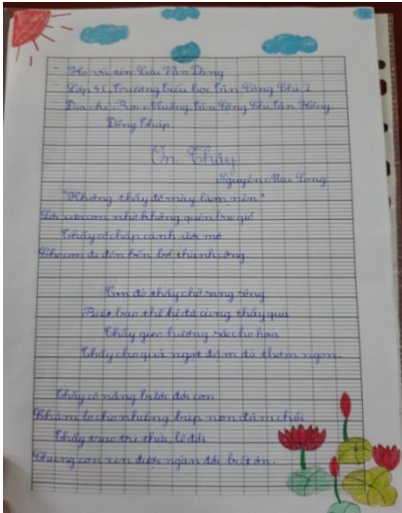 - Họ và tên: Lưu Văn Đong
- Lớp 4C, trường tiểu học Tân Công Chí 2
- Địa chỉ: Ấp Mường, Tân Công Chí, Tân Hồng,
Đồng Tháp
Ơn Thầy
Nguyễn Mai Long
"Không thầy đố mày làm nên"
Lời xưa con nhớ không quên bao giờ
Thầy cô chắp cánh ước mơ
Cho con đi đến bến bờ thành công.
Con đò thầy chở sang sông
Biết bao thế hệ đã cùng thầy qua
Thầy gieo hương sắc cho hoa
Thầy cho quả ngọt đậm đà thơm ngon.
Thầy cô nâng bước đời con
Chăm lo cho những búp non đâm chồi
Thầy trao tri thức, lẽ đời
Chúng con xin được ngàn đời biết ơn.